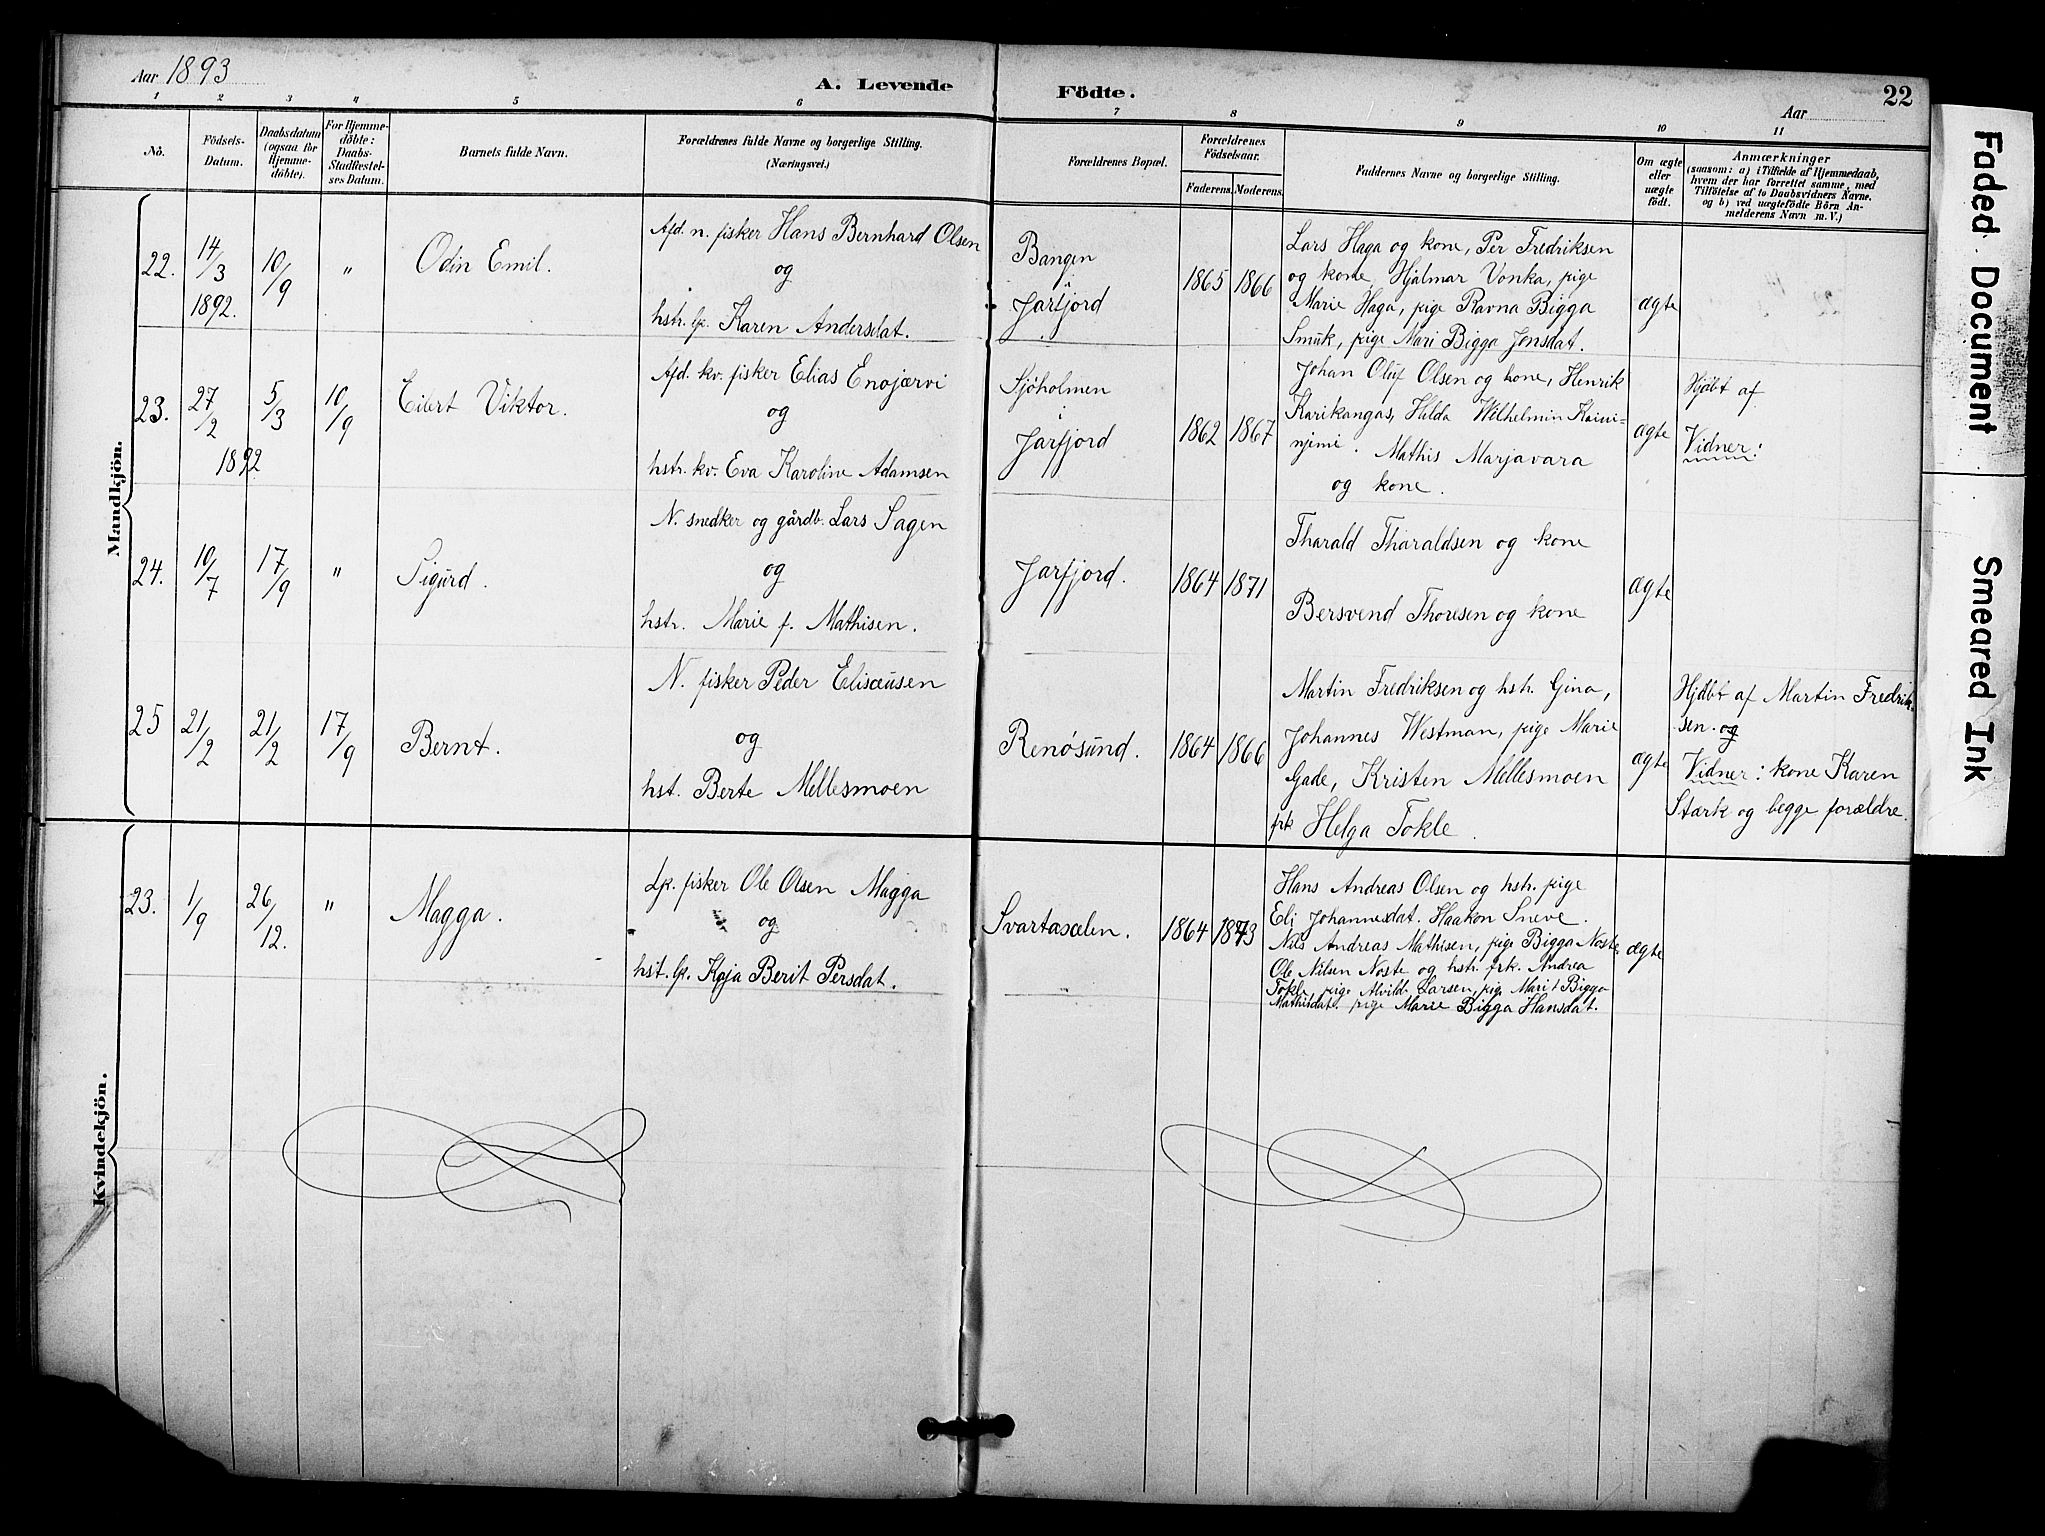 Aar 1893
A. Levende Födte.
Aar
22
1 2 3 4 5 6 7 8 9 10 11
No.
Födsels-
Datum.
Daabsdatum
(ogsaa for
Hjemme-
döbte).
For Hjemme-
döbte:
Daabs-
Stadfæstel-
ses Datum.
Barnets fulde Navn.
Forældrenes fulde Navne og borgerlige Stilling.
(Næringsvei.)
Forældrenes Bopæl.
Forældrenes
Födselsaar.
Faderens. Moderens.
Faddernes Navne og borgerlige Stilling.
Om ægte
eller
uægte
födt.
Anmærkninger
(saasom: a) i Tilfælde af Hjemmedaab,
hvem der har forrettet samme, med
Tilföielse af to Daabsvidners Navne.
og b) ved uægtefödte Börn An-
melderens Navn m. V.)
Mandkjön.
22.
14/3
1892.
10/9
"
Odin Emil.
Afd. n. fisker Hans Bernhard Olsen
og
hstr. lp. Karen Andersdat.
Bangen
i
Jarfjord
1865
1866
Lars Haga og kone, Per Fredriksen
og kone, Hjalmar Vonka, pige
Marie Haga, pige Ravna Bigga
Smuk, pige Mari Bigga Jonsdat.
ægte
23.
27/2
1892
5/3
10/9
Eilert Viktor.
Afd. kv. fisker Elias Enojærvi
og
hstr. kv. Eva Karoline Adamsen
Sjöholmen
i
Jarfjord
1862
1867
Johan Oluf Olsen og kone, Henrik
Karikangas, Hilda Wilhelmin Kaini-
njimi. Mathis Marjavara
og kone.
ægte
Hjdbt af
Vidner:
24.
10/7
17/9
"
Sigurd.
N. snedker og gårdb. Lars Sagen
og
hstr. Marie f. Mathisen.
Jarfjord.
1864
1871
Tharald Tharaldsen og kone
Bersvend Thoresen og kone
ægte
25
21/2
21/2
17/9
Bernt.
N. fisker Peder Elisæusen
og
hst. Berte Mellesmoen
Renøsund.
1864
1866
Martin Fredriksen og hstr. Gina,
Johannes Westman, pige Marie
Gade, Kristen Mellesmoen
frk Helga Tokle.
ægte
Hjdbt af Martin Fredrik-
sen. og
Vidner: kone Karen
Stærk og begge forældre.
Kvindekjön.
23.
1/9
26/12.
"
Magga.
Lp. fisker Ole Olsen Magga
og
hst. lp. Kaja Berit Persdat.
Svartaselen.
1864
1873
Hans Andreas Olsen og hstr. pige
Eli Johannesdat. Haakon Sneve.
Nils Andreas Mathisen, pige Bigga Noste.
Ole Nilsen Noste og hstr. frk. Andrea
Tokle, pige Alvild Larsen, pige Marit Bigga
Mathisdat. pige Marie Bigga Hansdat.
ægte
Faded Document
Smeared Ink